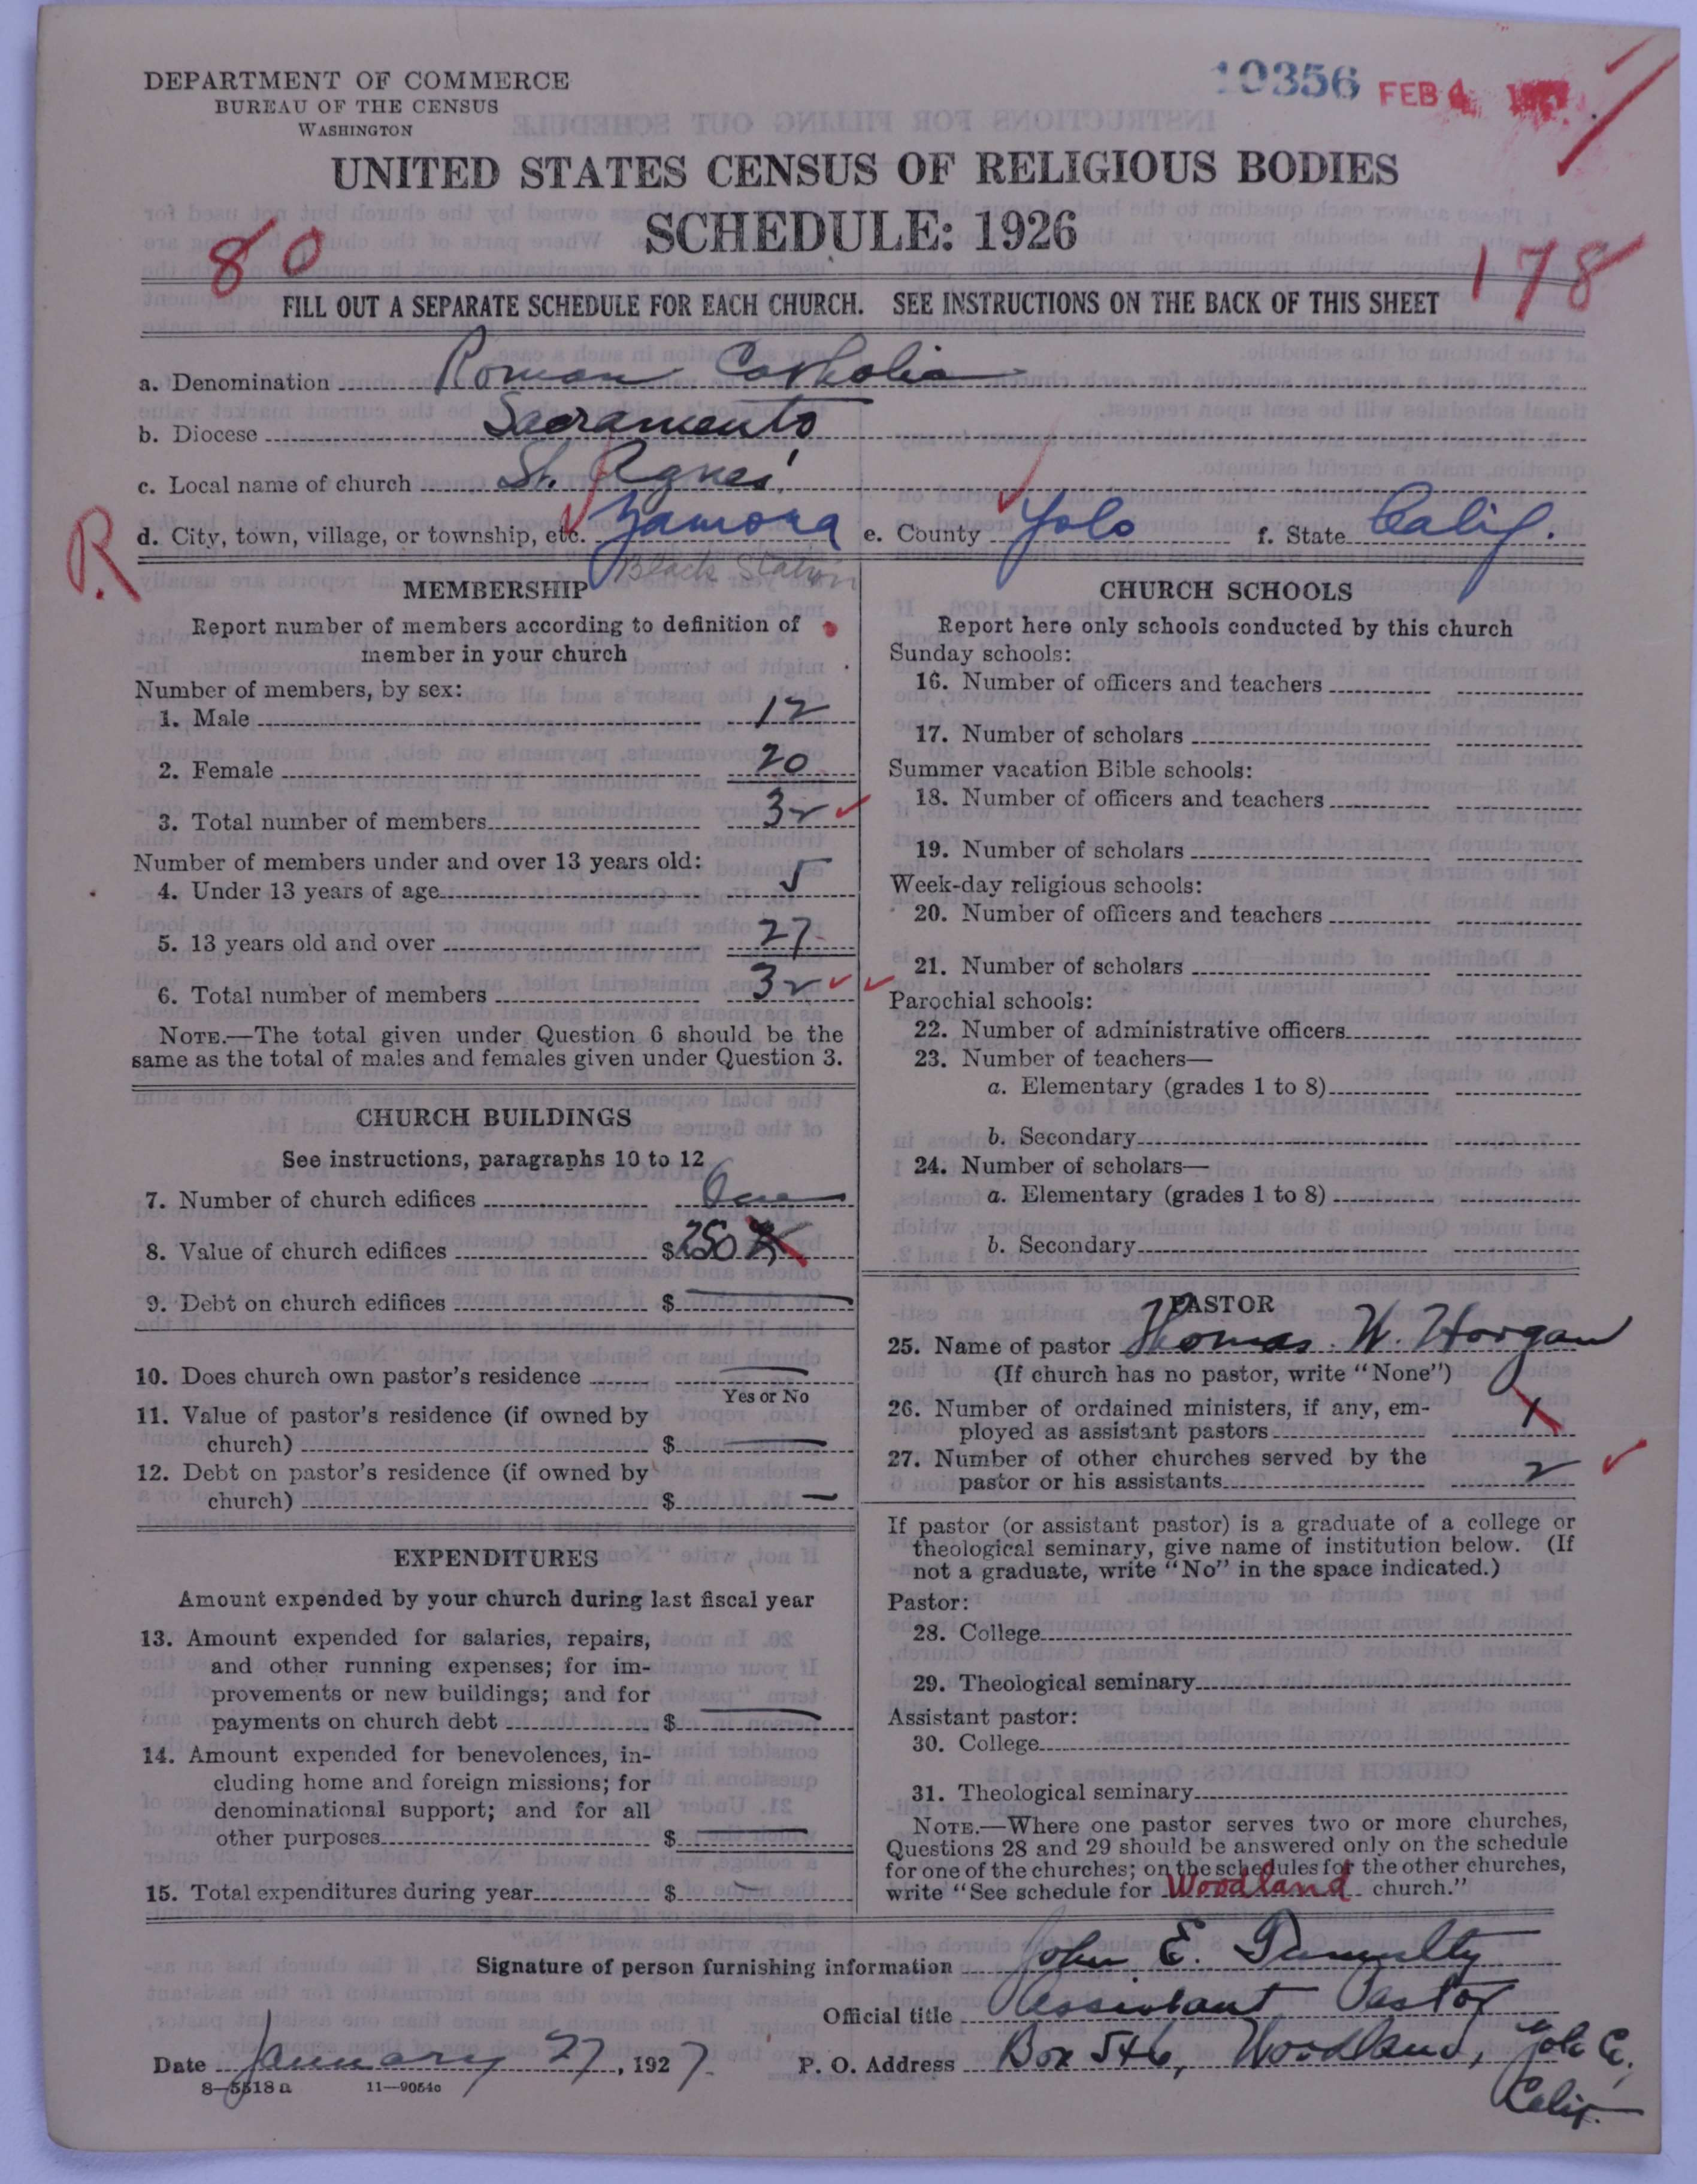 DEPARTMENT OF COMMERCE
BUREAU OF THE CENSUS
WASHINGTON
10356 FEB 4
UNITED STATES CENSUS OF RELIGIOUS BODIES
SCHEDULE: 1926
80
178
FILL OUT A SEPARATE SCHEDULE FOR EACH CHURCH. SEE INSTRUCTIONS ON THE BACK OF THIS SHEET
a. Denomination Roman Catholic
b. Diocese Sacramento
c. Local name of church St. Agnes
R. d. City, town, village, or township, etc. Zamora e. County Yolo f. State Calif.
Blacks Station
MEMBERSHIP
Report number of members according to definition of
member in your church
Number of members, by sex:
1. Male 12
2. Female 20
3. Total number of members 32
Number of members under and over 13 years old:
4. Under 13 years of age 5
5. 13 years old and over 27
6. Total number of members 32
NOTE.—The total given under Question 6 should be the
same as the total of males and females given under Question 3.
CHURCH BUILDINGS
See instructions, paragraphs 10 to 12
7. Number of church edifices One
8. Value of church edifices $250
9. Debt on church edifices $ —
10. Does church own pastor's residence —
Yes or No
11. Value of pastor's residence (if owned by
church) $ —
12. Debt on pastor's residence (if owned by
church) $ —
EXPENDITURES
Amount expended by your church during last fiscal year
13. Amount expended for salaries, repairs,
and other running expenses; for im-
provements or new buildings; and for
payments on church debt $ —
14. Amount expended for benevolences, in-
cluding home and foreign missions; for
denominational support; and for all
other purposes $ —
15. Total expenditures during year $ —
CHURCH SCHOOLS
Report here only schools conducted by this church
Sunday schools:
16. Number of officers and teachers
17. Number of scholars
Summer vacation Bible schools:
18. Number of officers and teachers
19. Number of scholars
Week-day religious schools:
20. Number of officers and teachers
21. Number of scholars
Parochial schools:
22. Number of administrative officers
23. Number of teachers—
a. Elementary (grades 1 to 8)
b. Secondary
24. Number of scholars—
a. Elementary (grades 1 to 8)
b. Secondary
PASTOR
25. Name of pastor Thomas W. Horgan
(If church has no pastor, write "None")
26. Number of ordained ministers, if any, em-
ployed as assistant pastors 1
27. Number of other churches served by the
pastor or his assistants 2
If pastor (or assistant pastor) is a graduate of a college or
theological seminary, give name of institution below. (If
not a graduate, write "No" in the space indicated.)
Pastor:
28. College
29. Theological seminary
Assistant pastor:
30. College
31. Theological seminary
NOTE.—Where one pastor serves two or more churches,
Questions 28 and 29 should be answered only on the schedule
for one of the churches; on the schedules for the other churches,
write "See schedule for Woodland church."
Signature of person furnishing information John E.
Official title Assistant Pastor
Date January 27, 1927. P. O. Address Box 546, Woodland, Yolo Co.
Calif.
8—5518a 11—9054c